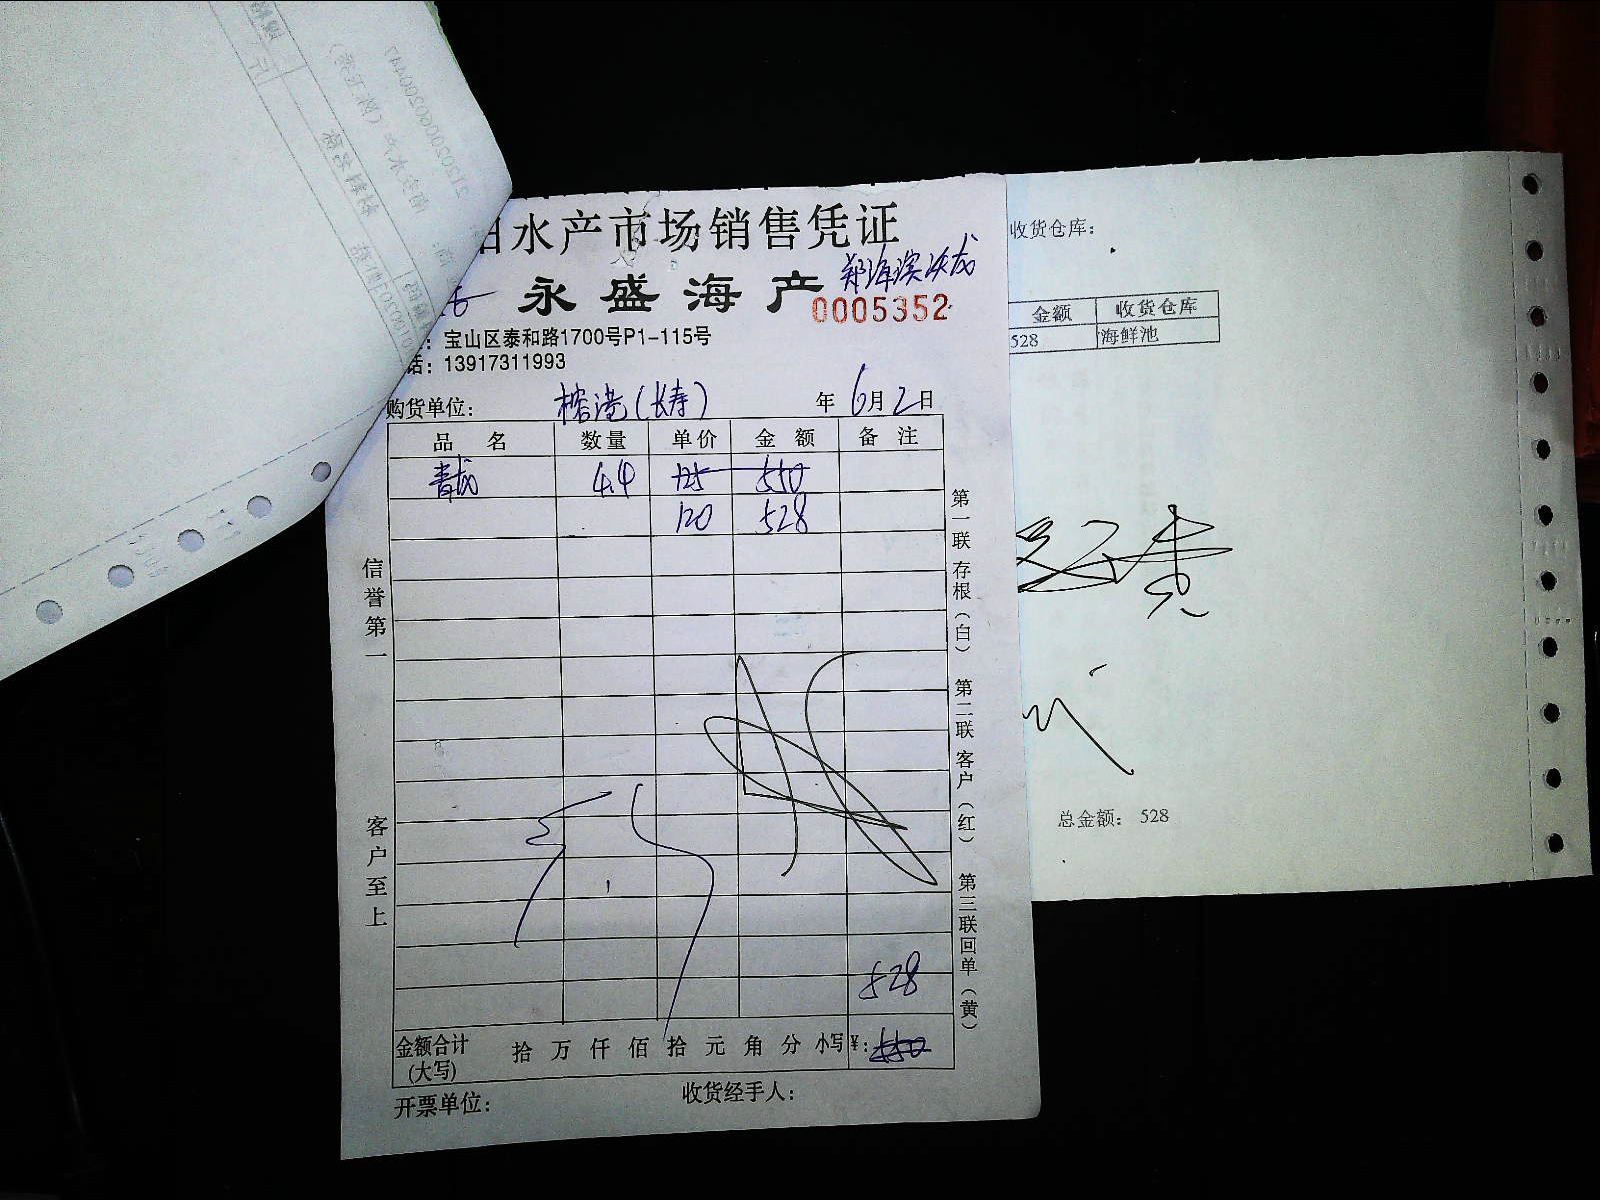 水产市场销售凭证
永盛海产
0005352
宝山区泰和路1700号P1-115号
话：13917311993
购货单位： 榕港（长寿） 年 6月2日
品名 数量 单价 金额 备注
青龙 4.4 125 550
120 528
信誉第一
客户至上
第一联存根（白） 第二联客户（红） 第三联回单（黄）
528
金额合计（大写） 拾 万 仟 佰 拾 元 角 分 小写 ¥：550
开票单位：
收货经手人：
收货仓库：
金额 收货仓库
528 海鲜池
总金额： 528